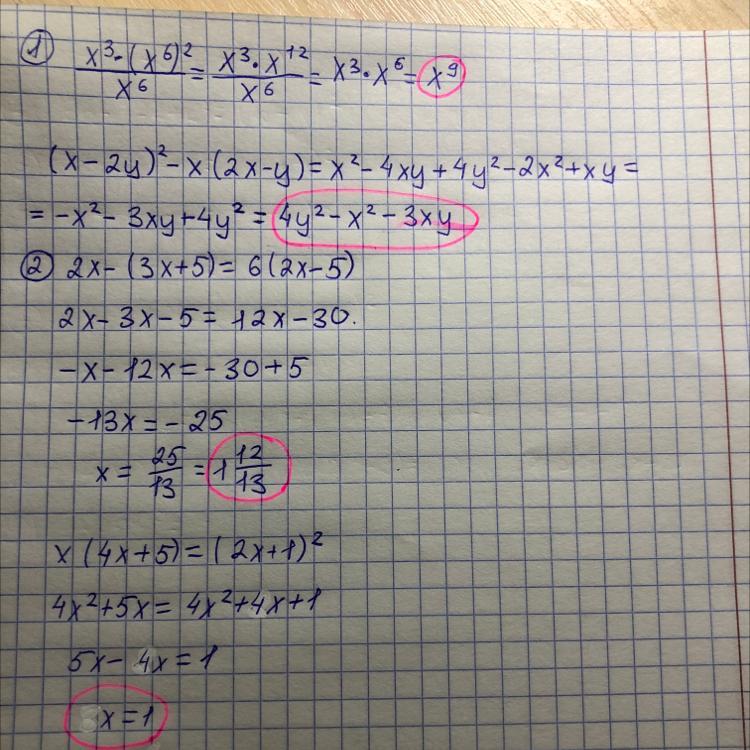 ① x³·(x⁶)²/x⁶ = x³·x¹²/x⁶ = x³·x⁶ = x⁹
(x-2y)²-x(2x-y)=x²-4xy+4y²-2x²+xy=
= -x²-3xy+4y² = 4y²-x²-3xy
② 2x-(3x+5)=6(2x-5)
2x-3x-5=12x-30.
-x-12x=-30+5
-13x=-25
x = 25/13 = 1 12/13
x(4x+5)=(2x+1)²
4x²+5x=4x²+4x+1
5x-4x=1
x=1